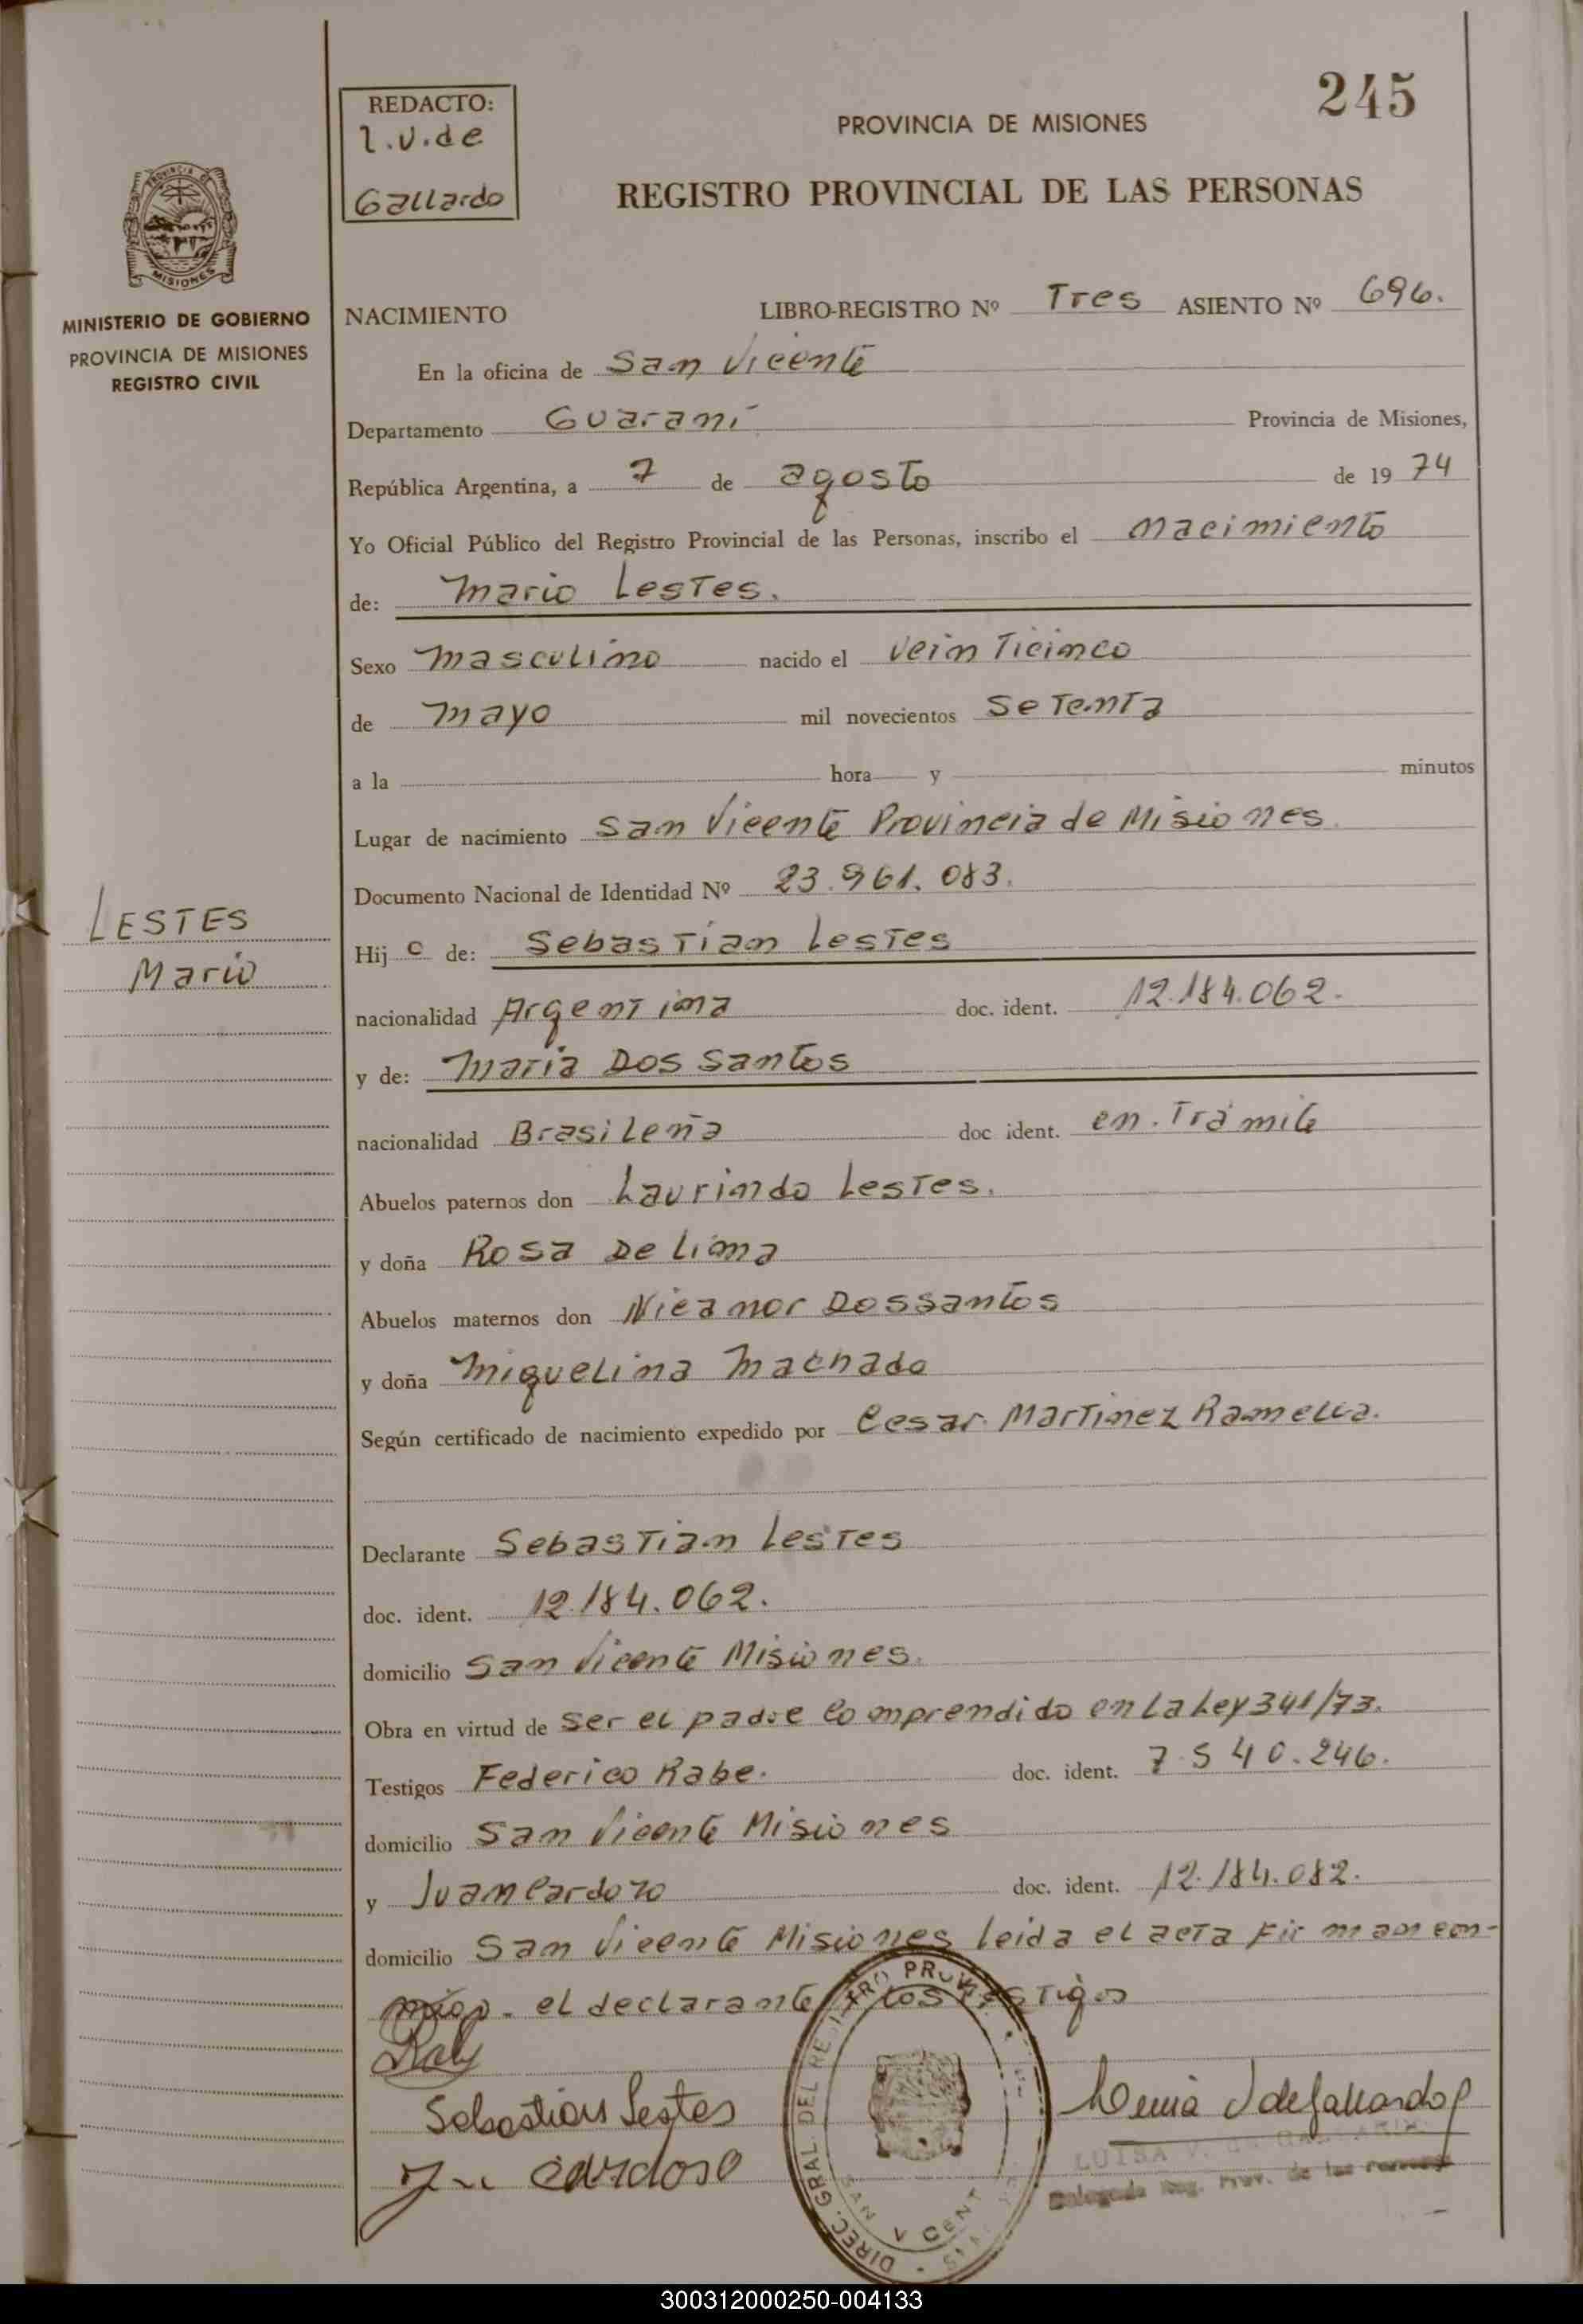 245
REDACTO:
L.V. de
Gallardo
PROVINCIA DE MISIONES
REGISTRO PROVINCIAL DE LAS PERSONAS
PROVINCIA DE
MISIONES
MINISTERIO DE GOBIERNO
PROVINCIA DE MISIONES
REGISTRO CIVIL
NACIMIENTO LIBRO-REGISTRO Nº Tres ASIENTO Nº 696.
En la oficina de San Vicente
Departamento Guaraní Provincia de Misiones,
República Argentina, a 7 de agosto de 1974
Yo Oficial Público del Registro Provincial de las Personas, inscribo el nacimiento
de: Mario Lestes.
Sexo masculino nacido el veinticinco
de mayo mil novecientos setenta
a la hora y minutos
Lugar de nacimiento San Vicente Provincia de Misiones
Documento Nacional de Identidad Nº 23.961.083.
LESTES
Mario
Hijo de: Sebastian Lestes
nacionalidad Argentina doc. ident. 12.184.062.
y de: Maria Dos Santos
nacionalidad Brasileña doc ident. en Trámite
Abuelos paternos don Laurindo Lestes.
y doña Rosa De Lima
Abuelos maternos don Nicanor Dossantos
y doña Miquelina Machado
Según certificado de nacimiento expedido por Cesar Martinez Ramella.
Declarante Sebastian Lestes
doc. ident. 12.184.062.
domicilio San Vicente Misiones.
Obra en virtud de ser el padre comprendido en la Ley 341/73.
Testigos Federico Rabe. doc. ident. 7.540.246.
domicilio San Vicente Misiones
y Juan Cardozo doc. ident. 12.184.082.
domicilio San Vicente Misiones leída el acta firman con-
migo. el declarante y los testigos
Sebastian Lestes
Cardoso
DIREC. GRAL. DEL REGISTRO PROV.
SAN VICENTE
LUISA V. DE GALLARDO
Delegada Reg. Prov. de las Personas
300312000250-004133